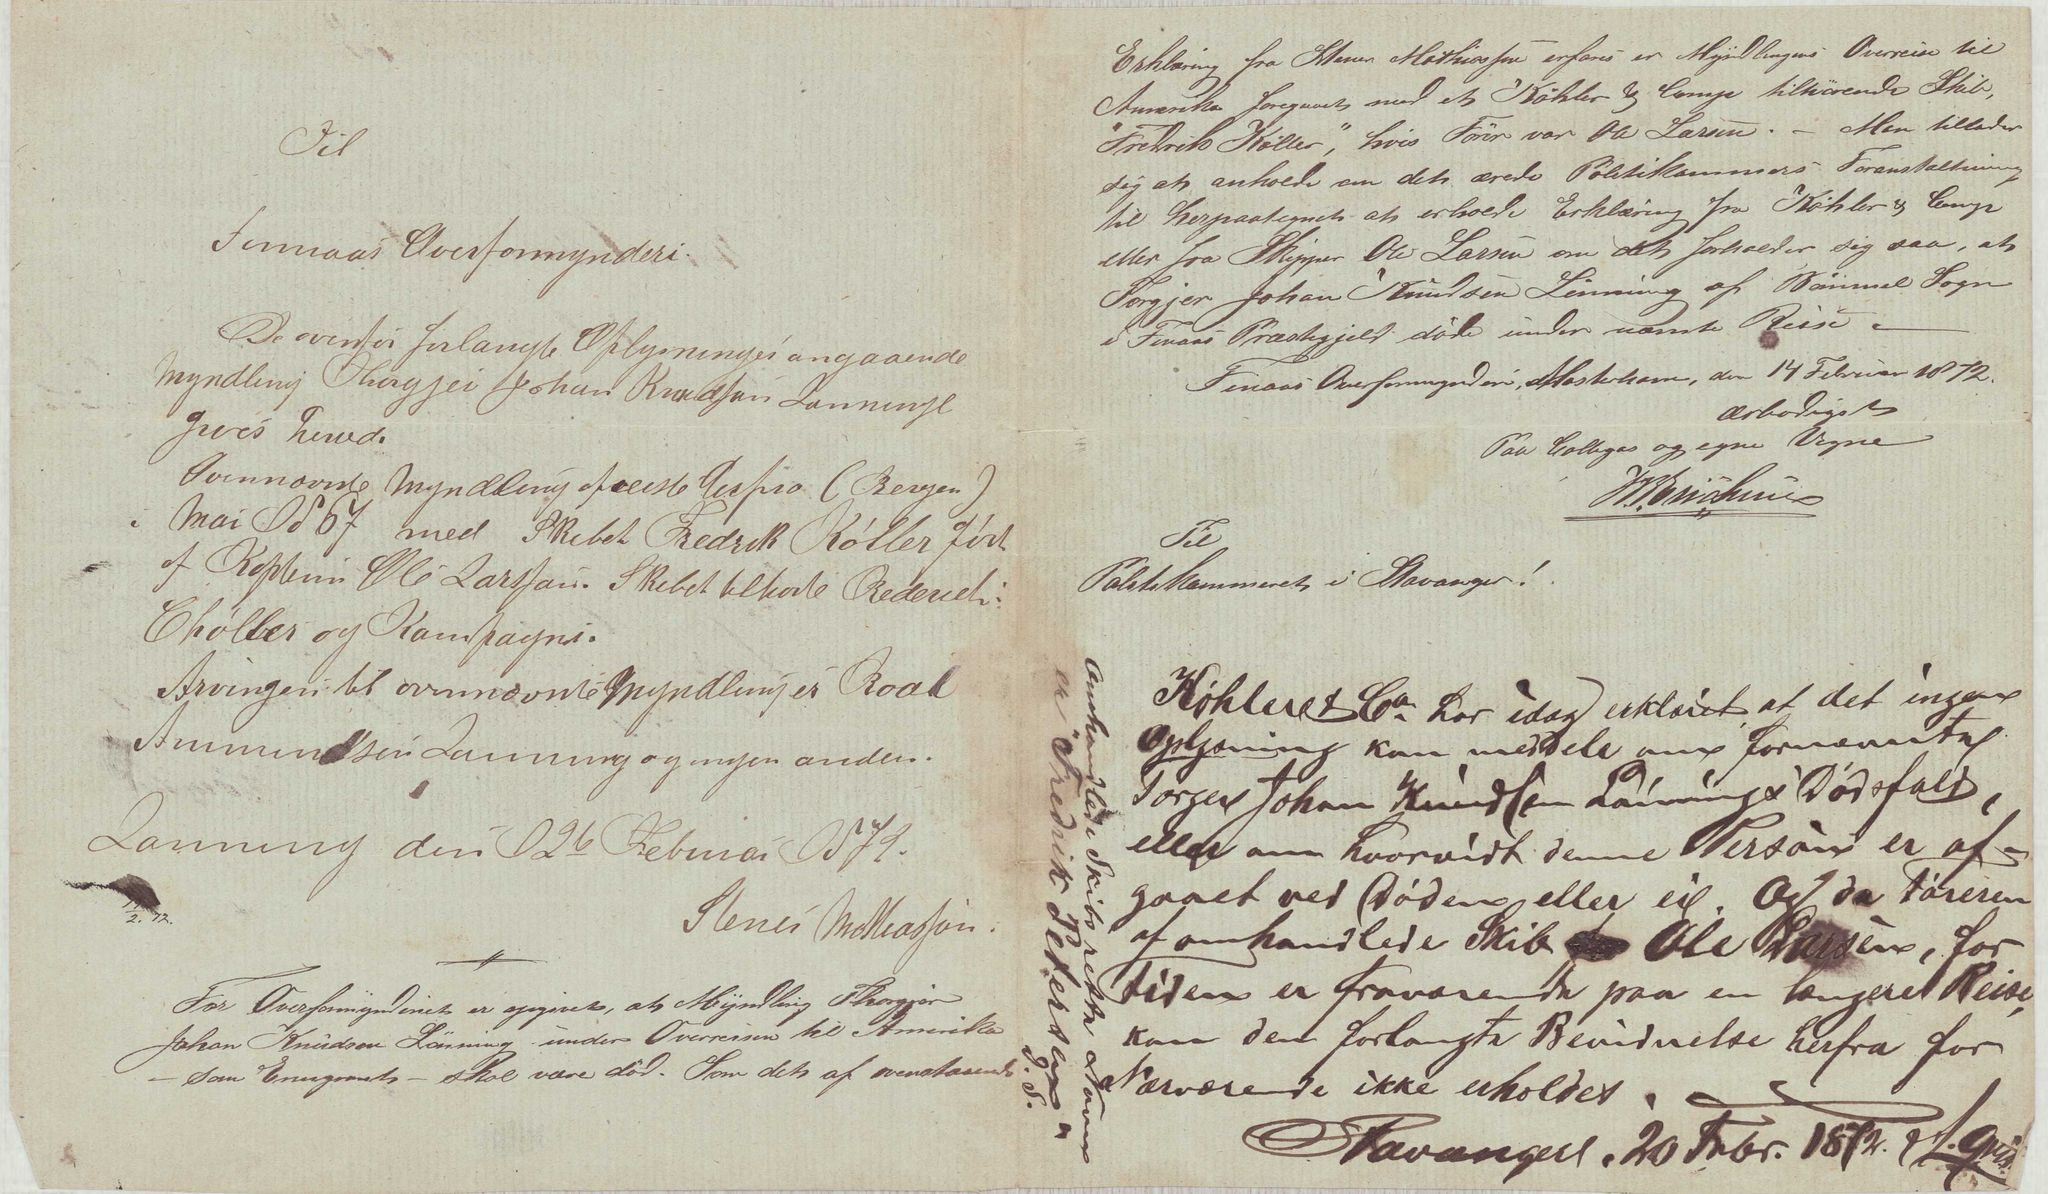 Til
Finnaas Overformynderi.
De ovenfor forlangte Oplysninger angaaende
Myndling Thorgjei Johan Knudsen Lanninge
gives herved.
Ovennævnte Myndling afreiste herfra (Bergen)
i Mai 1867 med Skibet Fredrik Køller ført
af Kaptein Ole Larssen. Skibet tilhørte Rederiet:
Chøller og Kampagni.
Arvingen til ovennævnte Myndling er Roal
Ammundsen Lanning og ingen anden.
Lanning den 12te Februar 1872.
Stener Mathiassen.
2. 72.
For Overformynderiet er opgivet, at Myndling Thorgjer
Johan Knudsen Lönning under Overreisen til Amerika
– som Emigrant – skal være död. Som det af ovenstaaende
Erklæring fra Stener Mathiassen erfares er Myndlingens Overreise til
Amerika foregaaet med et Köhler & Comp tilhörende Skib,
"Fredrik Köller", hvis Förer var Ole Larsen. – Man tillader
sig at anholde om det ærede Politikammers Foranstaltning
til herpaategnet at erholde Erklæring fra Köhler & Comp
eller fra Skipper Ole Larsen om det forholder sig saa, at
Torgjer Johan Knudsen Lönning af Bömmel Sogn
i Finaas Præstegjeld döde under nævnte Reise. –
Finaas Overformynderi, Mosterhavn, den 14 Februar 1872.
ærbødigst
Paa Collegas og egne Vegne
Til
Politikammeret i Stavanger!
Köhler & Co. har idag erklæret at det ingen
Oplysning kan meddele om fornævnte
Torger Johan Knudsen Lönnings Dødsfald,
eller om hvorvidt denne Person er af-
gaaet ved Døden eller ei. Og da Føreren
af omhandlede Skib Ole Larsen, for
tiden er fraværende paa en længere Reise,
kan den forlangte Bevidnelse herfra for
Nærværende ikke erholdes.
Stavanger, 20 Febr. 1872.
Omhandlede Skibs rette Navn
er "Fredrik Petersen"
D. S.